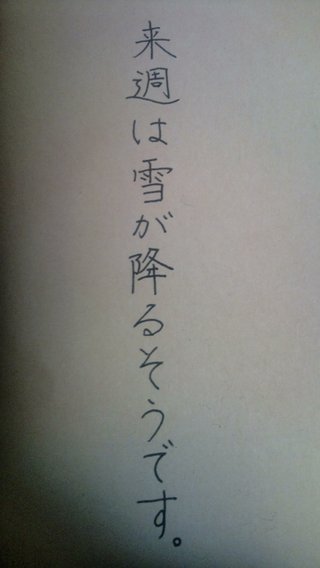 来週は雪が降るそうです。